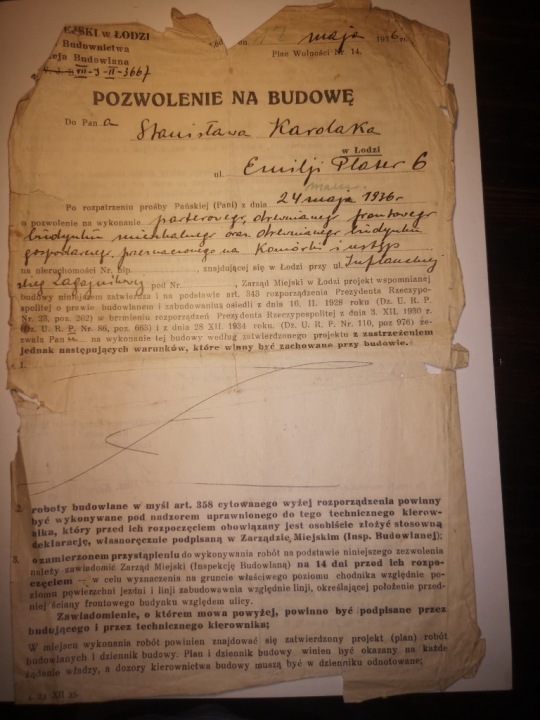 EJSKI w ŁODZI
Budownictwa
cja Budowlana
VII-J-II-3667
maja 1936 r.
Plan Wulności Nr. 14.
POZWOLENIE NA BUDOWĘ
Do Pana Stanisława Karolaka
w Łodzi
ul. Emilji Plater 6
Po rozpatrzeniu prośby Pańskiej (Pani) z dnia 24 maja 1936 r.
o pozwolenie na wykonanie parterowego, drewnianego frontowego
budynku mieszkalnego oraz drewnianego budynku
gospodarczego, przeznaczonego na Komórki i ustęp
na nieruchomości Nr. hip. , znajdującej się w Łodzi przy ul.
pod Nr. , Zarząd Miejski w Łodzi projekt wspomnianej
budowy niniejszem zatwierdza i na podstawie art. 348 rozporządzenia Prezydenta Rzeczypo-
spolitej o prawie budowlanem i zabudowaniu osiedli z dnia 16. II. 1928 roku (Dz. U. R. P.
Nr. 23, poz. 202) w brzmieniu rozporządzeń Prezydenta Rzeczypospolitej z dnia 3. XII. 1930 r.
(Dz. U. R. P. Nr. 86, poz. 663) i z dnia 28 XII. 1934 roku. (Dz. U. R. P. Nr. 110, poz 976) ze-
zwala Panu na wykonanie tej budowy według zatwierdzonego projektu z zastrzeżeniem
jednak następujących warunków, które winny być zachowane przy budowie.
1.
2. roboty budowlane w myśl art. 358 cytowanego wyżej rozporządzenia powinny
być wykonywane pod nadzorem uprawnionego do tego technicznego kierow-
nika, który przed ich rozpoczęciem obowiązany jest osobiście złożyć stosowną
deklarację, własnoręcznie podpisaną w Zarządzie Miejskim (Insp. Budowlanej);
3. o zamierzonem przystąpieniu do wykonywania robót na podstawie niniejszego zezwolenia
należy zawiadomić Zarząd Miejski (Inspekcję Budowlaną) na 14 dni przed ich rozpo-
częciem — w celu wyznaczenia na gruncie właściwego poziomu chodnika względnie po-
ziomu powierzchni jezdni i linji zabudowania względnie linji, określającej położenie przed-
niej ściany frontowego budynku względem ulicy.
Zawiadomienie, o którem mowa powyżej, powinno być podpisane przez
budującego i przez technicznego kierownika;
W miejscu wykonania robót powinien znajdować się zatwierdzony projekt (plan) robót
budowlanych i dziennik budowy. Plan i dziennik budowy winien być okazany na każde
żądanie władzy, a dozory kierownictwa budowy muszą być w dzienniku odnotowane;
XII 35.